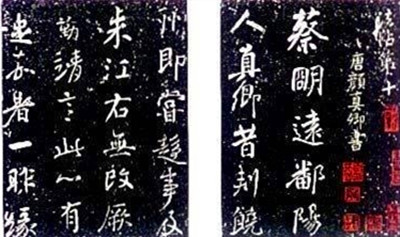 帖第十
唐顏真卿書
蔡明遠鄱陽
人真卿昔刺饒
州即嘗趍事及
来江右無改厥
勤靖言此心有
足嘉者一昨緣